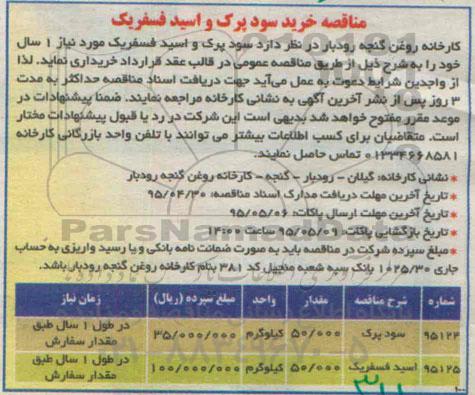 مناقصه خرید سود پرک و اسید فسفریک
کارخانه روغن گنجه رودبار در نظر دارد سود پرک و اسید فسفریک مورد نیاز ۱ سال
خود را به شرح ذیل از طریق مناقصه عمومی در قالب عقد قرارداد خریداری نماید. لذا
از واجدین شرایط دعوت به عمل می‌آید جهت دریافت اسناد مناقصه حداکثر به مدت
۳ روز پس از نشر آخرین آگهی به نشانی کارخانه مراجعه نمایند. ضمنا پیشنهادات در
موعد مقرر مفتوح خواهد شد بدیهی است این شرکت در رد یا قبول پیشنهادات مختار
است. متقاضیان برای کسب اطلاعات بیشتر می توانند با تلفن واحد بازرگانی کارخانه
۰۱۳۳۴۶۶۸۵۸۱ تماس حاصل نمایند.
* نشانی کارخانه: گیلان - رودبار - گنجه - کارخانه روغن گنجه رودبار
* تاریخ آخرین مهلت دریافت مدارک اسناد مناقصه: ۹۵/۰۴/۳۰
* تاریخ آخرین مهلت ارسال پاکات: ۹۵/۰۵/۰۶
* تاریخ بازگشایی پاکات: ۹۵/۰۵/۰۹ ساعت ۱۴:۰۰
* مبلغ سپرده شرکت در مناقصه باید به صورت ضمانت نامه بانکی و یا رسید واریزی به حساب
جاری ۱۰۲۵/۳۰ بانک سپه شعبه منجیل کد ۳۸۱ بنام کارخانه روغن گنجه رودبار باشد.
شماره شرح مناقصه مقدار واحد مبلغ سپرده (ریال) زمان نیاز
۹۵۱۲۴ سود پرک ۵۰/۰۰۰ کیلوگرم ۳۵/۰۰۰/۰۰۰ در طول ۱ سال طبق
مقدار سفارش
۹۵۱۲۵ اسید فسفریک ۵۰/۰۰۰ کیلوگرم ۱۰۰/۰۰۰/۰۰۰ در طول ۱ سال طبق
مقدار سفارش
ParsNamadData